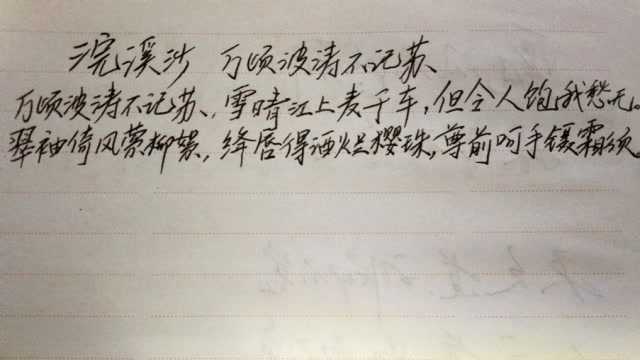 浣溪沙 万顷波涛不记苏、
万顷波涛不记苏、，雪晴江上麦千车，但令人饱我愁无。
翠袖倚风萦柳絮，绛唇得酒烂樱珠，尊前呵手镊霜须。